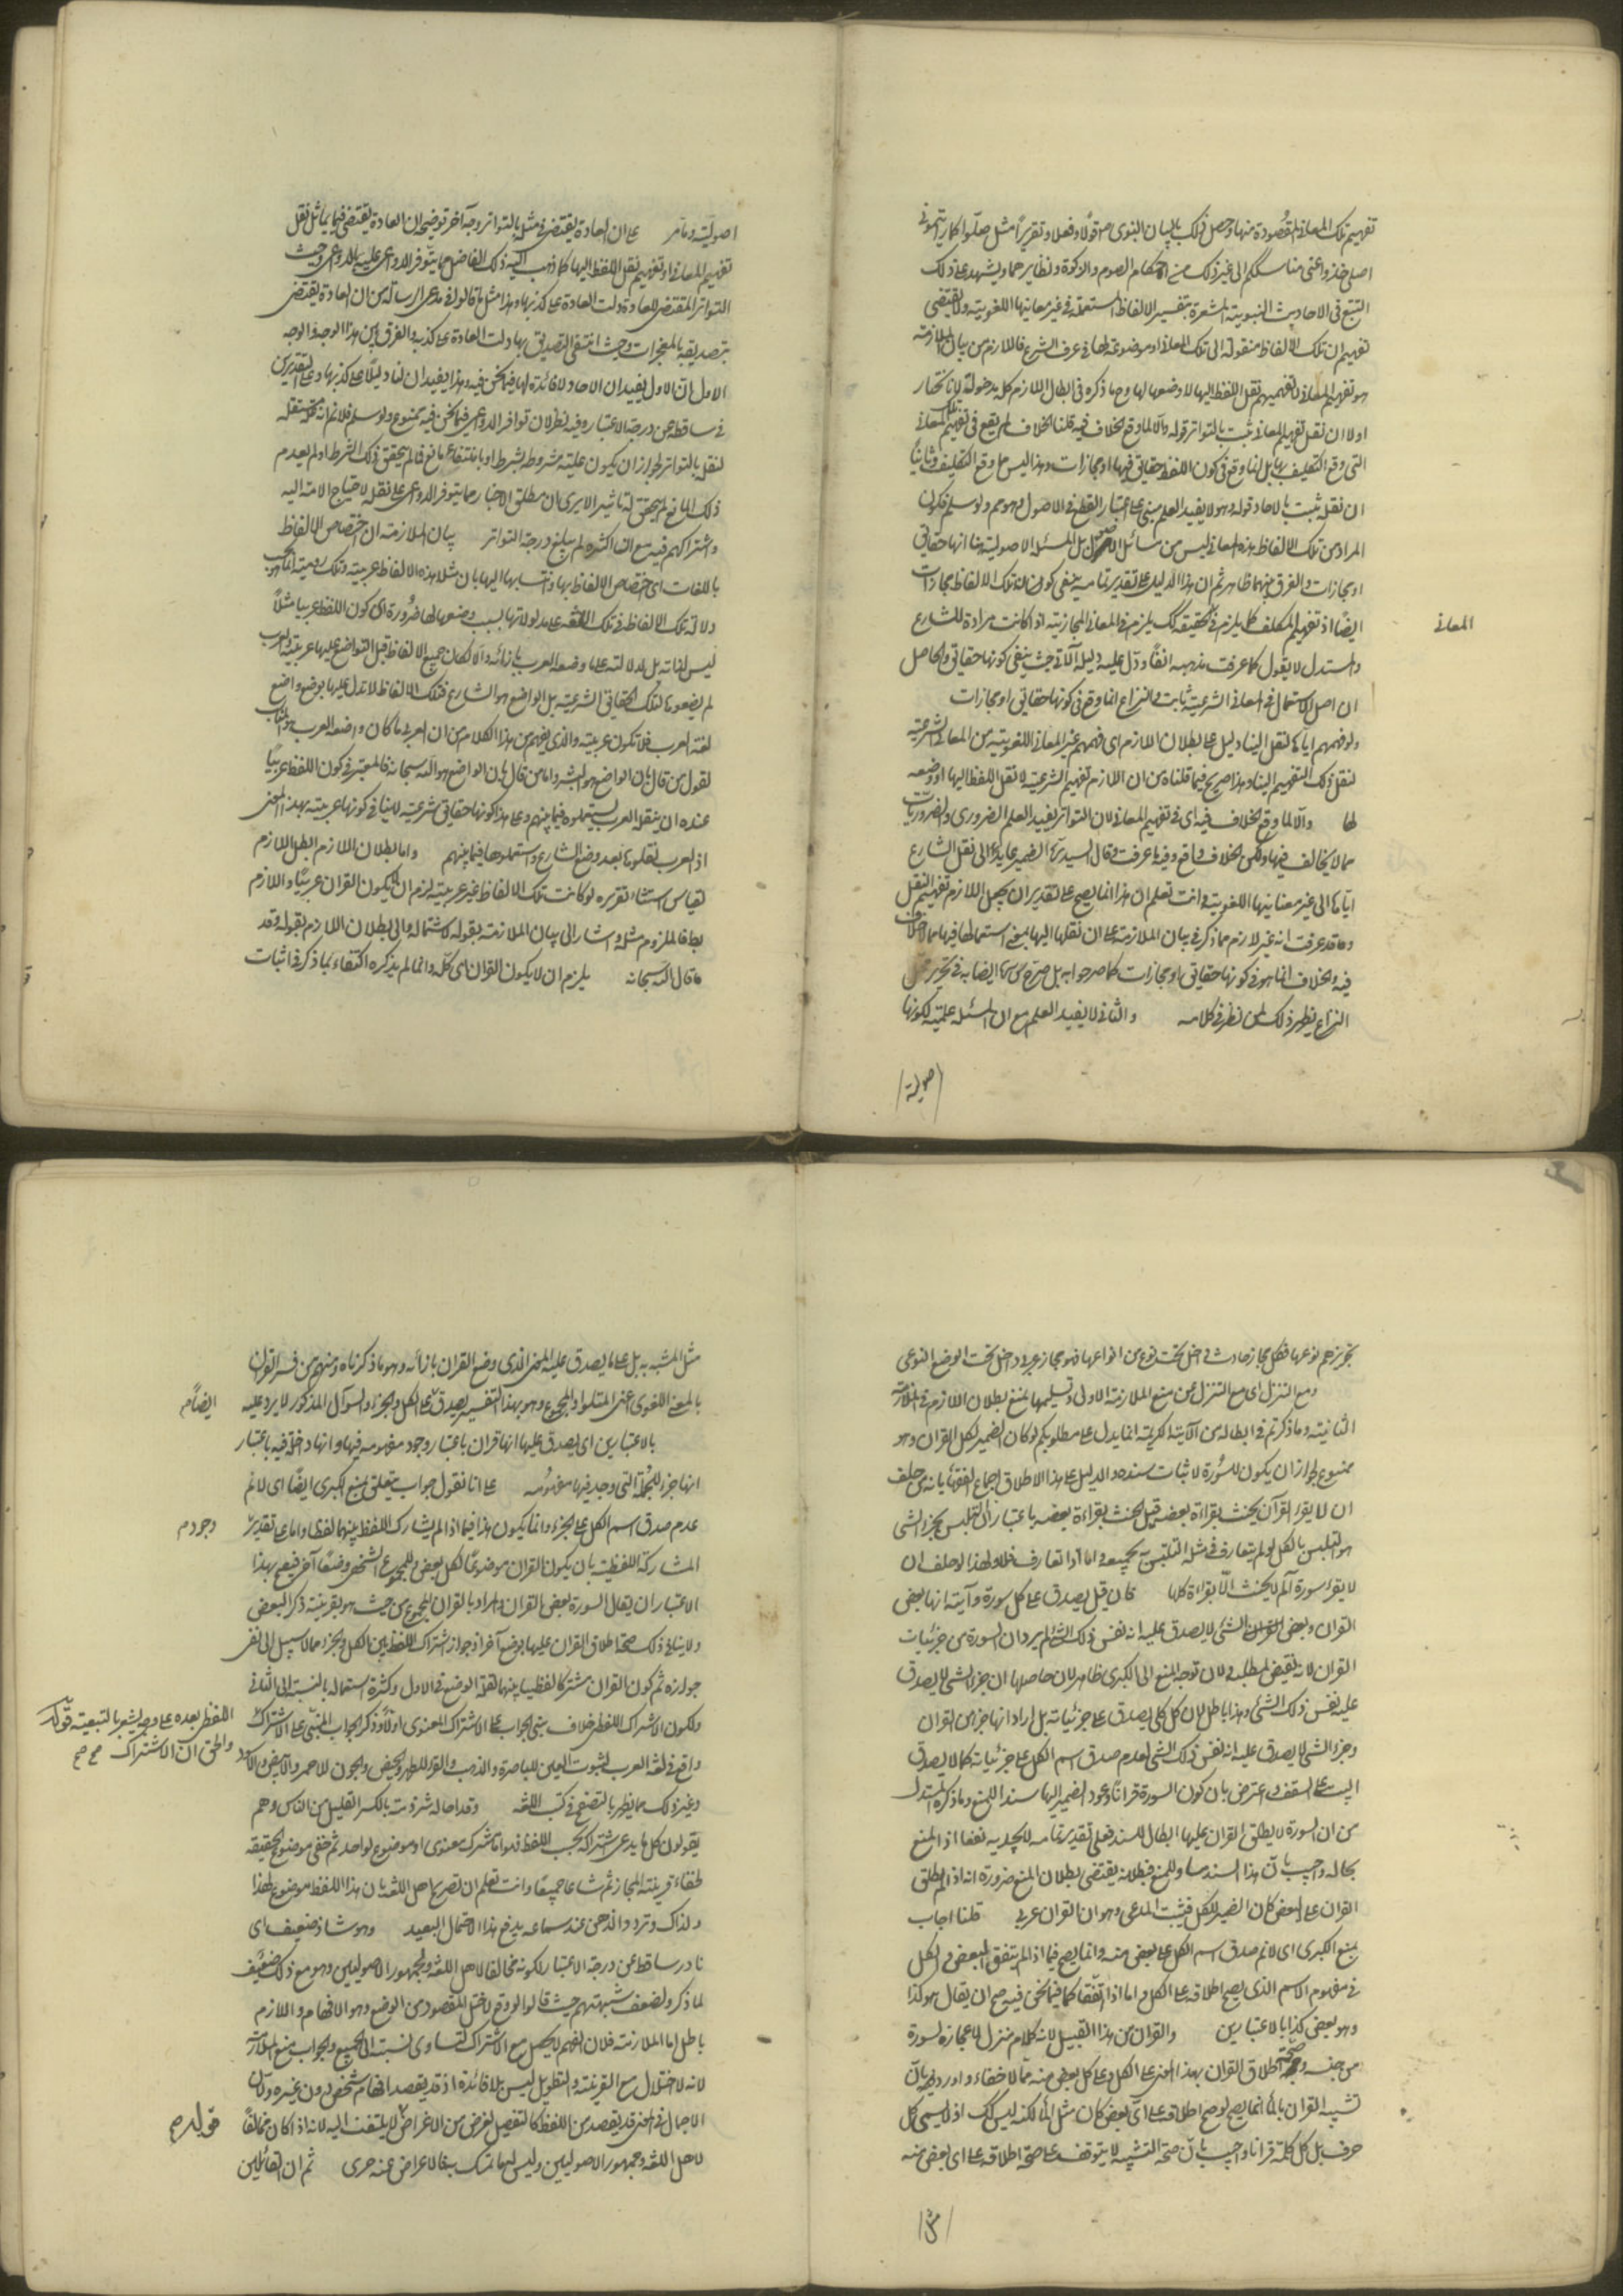 تفهيم تلك المعاني المقصودة منها وحصل ذلك بالبيان النبوي ص قولا وفعلا وتقريرا مثل صلوا كما رايتموني
اصلي وخذوا عني مناسككم الى غير ذلك من احكام الصوم والزكوة ونظايرهما ويشهد على ذلك
التتبع في الاحاديث النبوية المشعرة بتفسير الالفاظ المستعملة في غير معانيها اللغوية ولا يقتضي
تفهيم ان تلك الالفاظ منقولة الى تلك المعاني او موضوعة لها في عرف الشرع فاللازم من بيان الملازمة
هو تفهيم المعاني لا تفهيمهم نقل اللفظ اليها ولا وضعها لها وما ذكره في ابطال اللازم كله مدخولة لانا نختار
اولا ان نقل تفهيم المعاني ثبت بالتواتر قوله والا لما وقع الخلاف فيه قلنا الخلاف لم يقع في تفهيم تلك المعاني
التي وقع التكليف بها بل انما وقع في كون اللفظ حقايق فيها او مجازات وهذا ليس مما وقع التكليف به وثانيا
ان نقله ثبت بالاحاد قوله وهو لا يفيد العلم مبني على اعتبار القطع في الاصول وهو مم ولو سلم فكون
المراد من تلك الالفاظ هذه المعاني ليس من مسائل الاصول بل المسئلة الاصولية هنا انها حقايق
او مجازات والفرق بينهما ظاهر ثم ان هذا الدليل على تقدير تمامه ينفي كون تلك الالفاظ مجازات
ايضا اذ تفهيم المكلف كما يلزم في الحقيقة كك يلزم في المعاني المجازية اذا كانت مرادة للشارع
المعاني
والمستدل لا يقول كما عرفت مذهبه انفا ودل عليه دليله الآتي حيث ينفي كونها حقايق والحاصل
ان اصل الاستعمال في المعاني الشرعية ثابت والنزاع انما وقع في كونها حقايق او مجازات
ولو فهمهم اياها لنقل الينا دليل على بطلان اللازم اي فهمهم غير المعاني اللغوية من المعاني الشرعية
لنقل ذلك التفهيم الينا وهذا صريح فيما قلناه من ان اللازم تفهيم الشرعية لا نقل اللفظ اليها او وضعه
لها والا لما وقع الخلاف فيه اي في تفهيم المعاني لان التواتر يفيد العلم الضروري والضروريات
مما لا يخالف فيها ولكن الخلاف واقع وفيه ما عرفت وقال السيد ره الضمير عايد الى نقل الشارع
اياها الى غير معانيها اللغوية وانت تعلم ان هذا انما يصح على تقدير ان يجعل اللازم تفهيم النقل
وقد عرفت انه غير لازم مما ذكر في بيان الملازمة على ان نقلها اليها بمعنى استعمالها فيها مما لا خلاف
فيه والخلاف انما هو في كونها حقايق او مجازات كما صرحوا به بل صرح ايضا به في تحرير محل
النزاع يظهر ذلك لمن نظر في كلامه والثاني لا يفيد العلم مع ان المسئلة علمية لكونها
اصولية
اصولية وما مر على ان العادة يقتضي في مثله بالتواتر وجه آخر توضيحه ان العادة يقتضي فيما يماثل نقل
تفهيم المعاني او تفهيم نقل اللفظ اليها كما ذهب اليه ذلك الفاضل مما يتوفر الدواعي عليه بالدواعي وحيث
التواتر المقتضي للعادة دلت العادة على كذبها وهذا مثل ما قالوا في مدعي الرسالة من ان العادة يقتضي
بتصديقه بالمعجزات وحيث انتفى التصديق بها دلت العادة على كذبه والفرق بين هذا الوجه والوجه
الاول ان الاول يفيد ان الاحاد لا فائدة لها فيما نحن فيه وهذا يفيد ان لنا دليلا على كذبها وعلى التقديرين
في ساقطة عن درجة الاعتبار وفيه نظر لان توافر الدواعي فيما نحن فيه ممنوع ولو سلم فلا نم انه علة مستقلة
لنقله بالتواتر لجواز ان يكون علية مشروطة بشرط او بانتفاء مانع فما لم يتحقق ذلك الشرط او لم يعدم
ذلك المانع لم يتحقق له تاثير الا يرى ان مطلق الاخبار مما يتوفر الدواعي على نقله لاحتياج الامة اليه
واشتراكهم فيه مع ان اكثره لم يبلغ درجة التواتر بيان الملازمة ان اختصاص الالفاظ
باللغات اي اختصاص الالفاظ بها وانتسابها اليها بان مثلا هذه الالفاظ عربية وتلك رومية انما هو بحسب
دلالة تلك الالفاظ في تلك اللغة على مدلولاتها بسبب وضعها لها ضرورة ان كون اللفظ عربيا مثلا
ليس لذاته بل لدلالته على ما وضعه العرب بازائه والا لكان جميع الالفاظ قبل التواضع عليها عربية والعرب
لم يضعوا تلك الحقايق الشرعية بل الواضع هو الشارع فتلك الالفاظ لا تدل عليها بوضع واضع
لغة العرب فلا تكون عربية والذي يفهم من هذا الكلام من ان العربي ما كان واضعه العرب هو المناسب
لقول من قال بان الواضع هو البشر واما من قال بان الواضع هو الله سبحانه فالمعتبر في كون اللفظ عربيا
عنده ان ينقله العرب يستعملوه فيما بينهم وعلى هذا كونها حقايق شرعية لا ينافي كونها عربية بهذا المعنى
اذ العرب نقلوها بعد وضع الشارع واستعملوها فيما بينهم واما بطلان اللازم ابطل اللازم
بقياس استثنائي تقريره لو كانت تلك الالفاظ غير عربية لزم ان لا يكون القران عربيا واللازم
بط فالملزوم مثله واشار الى بيان الملازمة بقوله لاشتماله والى بطلان اللازم بقوله وقد
قال الله سبحانه يلزم ان لا يكون القران اي كله وانما لم يذكره اكتفاء بما ذكر في اثبات
بتجويزهم نوعها فكل مجاز حادث داخل تحت نوع من انواعها فهو مجاز عربي داخل تحت الوضع النوعي
ومع التنزل اي مع التنزل عن منع الملازمة الاولى وتسليمها بمنع بطلان اللازم في الملازمة
الثانية وما ذكرتم في ابطاله من الآية الكريمة انما يدل على مطلوبكم لو كان الضمير لكل القران وهو
ممنوع لجواز ان يكون للسورة لاثبات سنده والدليل على هذا الاطلاق اجماع الفقهاء بانه من حلف
ان لا يقرء القرآن يحنث بقراءة بعضه قيل الحنث بقراءة بعضه باعتبار ان التلبس بجزء الشئ
هو التلبس بالكل لو لم يتعارف في مثله التلبس بجميعه اما اذا تعارف فلا ولهذا لو حلف ان
لا يقرء سورة الم لا يحنث الا بقراءة كلها فان قيل يصدق على كل سورة وآية انها بعض
القران وبعض الشئ لا يصدق عليه انه نفس ذلك الشئ لم يرد ان السورة من جزئيات
القران لانه نقيض المطلوب لان توجه المنع الى الكبرى ظاهر لان حاصلها ان جزء الشئ لا يصدق
عليه نفس ذلك الشئ وهذا باطل لان كل كلي يصدق على جزئياته بل اراد انها جزء من القران
وجزء الشئ لا يصدق عليه انه نفس ذلك الشئ لعدم صدق اسم الكل على جزئياته كما لا يصدق
البيت على السقف واعترض بان كون السورة قرانا وعود الضمير اليها سند المنع وما ذكره المستدل
من ان السورة لا يطلق القران عليها ابطال للسند فعلى تقدير تمامه لا يجديه نفعا اذ المنع
بحاله واجيب بان هذا السند مساو للمنع فبطلانه يقتضي بطلان المنع ضرورة انه اذا لم يطلق
القران على البعض كان الضمير للكل فيثبت المدعى وهو ان القران عربي قلنا اجاب
بمنع الكبرى اي لا نم صدق اسم الكل على بعض منه وانما يصح فيما اذا لم يتفق البعض والكل
في مفهوم الاسم الذي يصح اطلاقه على الكل واما اذا اتفقا كما فيما نحن فيه صح ان يقال هو كذا
وهو بعض كذا بالاعتبارين والقران من هذا القبيل لانه كلام منزل للاعجاز بسورة
من جنسه وصحة اطلاق القران بهذا المعنى على الكل وعلى كل بعض منه مما لا خفاء واورد عليه بان
تشبيه القران بالماء انما يصح لو صح اطلاقه على اي بعض كان مثل الماء لكنه ليس كك اذ لا يسمى كل
حرف بل كل كلمة قرانا واجيب بان صحة التشبيه لا يتوقف على صحة اطلاقه على اي بعض منه
مثل
مثل المشبه به بل على ما يصدق عليه المعنى الذي وضع القران بازائه وهو ما ذكرناه ومنهم من فسر القران
بالمعنى اللغوي اعني المتلو او المجموع وهو بهذا التفسير يصدق على الكل والجزء والسؤال المذكور لا يرد عليه
ايضا م
بالاعتبارين اي يصدق عليها انها قران باعتبار وجود مفهومه فيها وانها داخلة فيه باعتبار
انها جزء للجملة التي وجد فيها مفهومه على انا نقول جواب يتعلق بمنع الكبرى ايضا اي لا نم
عدم صدق اسم الكل على الجزء وانما يكون هذا فيما اذا لم يشارك اللفظ بينهما لفظا واما على تقدير
وجود م
المشاركة اللفظية بان يكون القران موضوعا لكل بعض وللمجموع الشخصي وضعا آخر فيصح بهذا
الاعتبار ان يقال السورة بعض القران والمراد بالقران المجموع من حيث هو بقرينة ذكر البعض
ولا ينافي ذلك صحة اطلاق القران عليها بوضع آخر وجواز اشتراك اللفظ بين الكل والجزء مما لا سبيل الى نفي
جوازه ثم كون القران مشتركا لفظيا بينهما لتحقق الوضع في الاول وكثرة استعماله بالنسبة الى الثاني
ولكون الاشتراك اللفظي خلاف بنى الجواب على الاشتراك المعنوي اولا وذكر الجواب المبني على الاشتراك
اللفظي بعده على وجه يشعر بالتبعية قوله
والحق ان الاشتراك صح صح
واقع في لغة العرب لثبوت العين للباصرة والذهب والقرء للطهر والحيض والجون للاحمر والابيض والاسود
وغير ذلك مما يظهر بالتصفح في كتب اللغة وقد احاله شرذمة بالكسر القليل من الناس وهم
يقولون كل ما يدعى اشتراكه بحسب اللفظ فهو اما مشترك معنوي او موضوع لواحد ثم خفي موضع الحقيقة
لخفاء قرينة المجاز ثم شاعا جميعا وانت تعلم ان تصريح اهل اللغة بان هذا اللفظ موضوع لهذا
ولذاك وتردد الذهن عند سماعه يدفع هذا الاحتمال البعيد وهو شاذ ضعيف اي
نادر ساقط عن درجة الاعتبار لكونه مخالفا لاهل اللغة ولجمهور الاصوليين وهو مع ذلك ضعيف
لما ذكر ولضعف شبهتهم حيث قالوا لو وقع لاختل المقصود من الوضع وهو الافهام واللازم
باطل اما الملازمة فلان الفهم لا يحصل مع الاشتراك لتساوي نسبته الى الجميع والجواب منع الملازمة
لانه لا اختلال مع القرينة والتطويل ليس بلا فائدة اذ قد يقصد افهام شخص دون غيره ولان
الاجمال في المعنى قد يقصد من اللفظ كالتفصيل لغرض من الاغراض لا يلتفت اليه لانه اذا كان مخالفا
قوله م
لاهل اللغة وجمهور الاصوليين وليس لهما تمسك بها فالاعراض عنه حري ثم ان القائلين